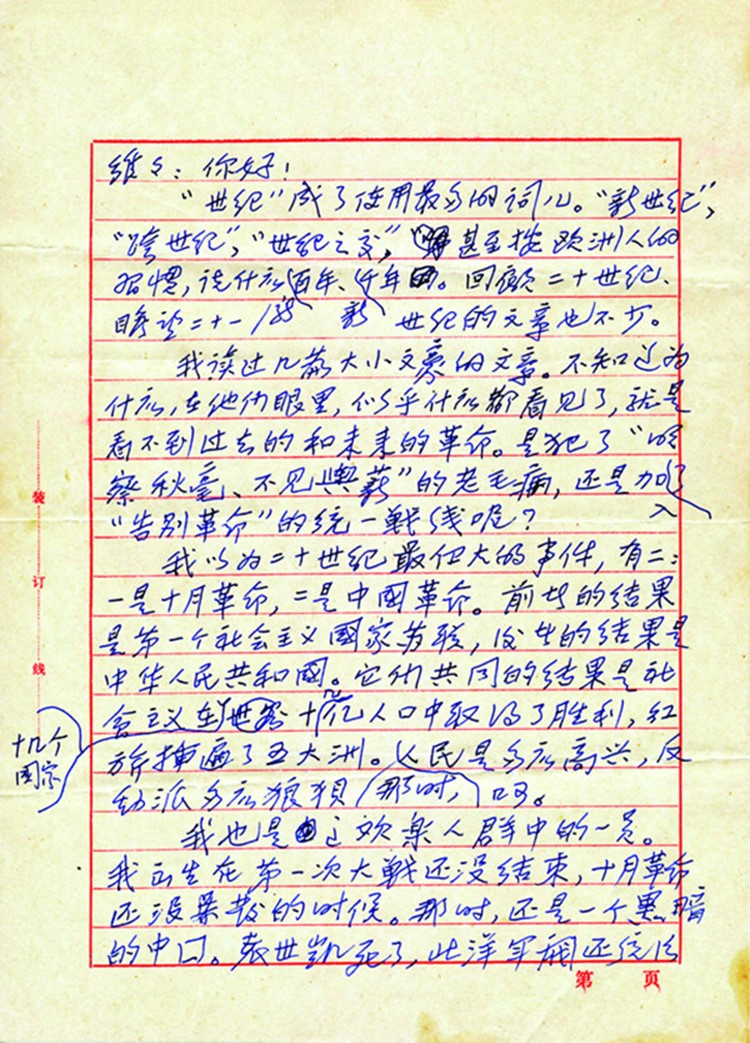 维々：你好！
“世纪”成了使用最多的词儿。“新世纪”，
“跨世纪”，“世纪之交”，甚至按欧洲人的
习惯，说什么百年、千年的。回顾二十世纪、
瞻望二十一 新 世纪的文章也不少。
我读过几篇大小文豪的文章。不知道为
什么，在他们眼里，似乎什么都看见了，就是
看不到过去的和未来的革命。是犯了“明
察秋毫、不见舆薪”的老毛病，还是加入了
“告别革命”的统一战线呢？
我以为二十世纪最伟大的事件，有二：
一是十月革命，二是中國革命。前者的结果
是第一个社会主义國家苏联，后者的结果是
中华人民共和國。它们共同的结果是社
会主义在十几个國家十几亿人口中取得了胜利，红
旗插遍了五大洲。那时，人民是多么高兴，反
动派多么狼狈呀。
我也是这欢乐人群中的一员。
我出生在第一次大战还没结束，十月革命
还没暴发的时候。那时，还是一个黑暗
的中囗。袁世凯死了，北洋军阀还统治
装
订
线
第 页